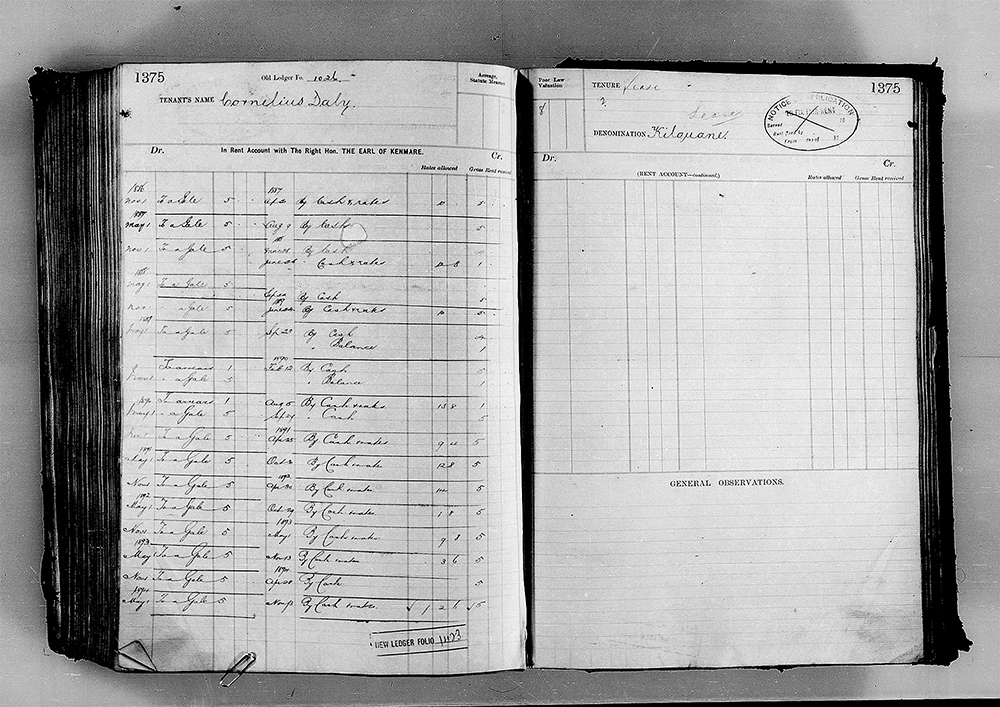 1375 Old Ledger Fo. 1026 Acreage, Statute Measure
TENANT'S NAME Cornelius Daly
Dr. In Rent Account with The Right Hon. THE EARL OF KENMARE. Cr.
Rates allowed Gross Rent received
1886 1887
Nov 1 To a Gale 5 By Cash & rates 10 5
1887
May 1 To a Gale 5 Aug 9 By Cash 5
Nov 1 To a Gale 5 By Cash
June Cash & rates 10 8 1
1888
May 1 To a Gale 5
Sep By Cash 5
Nov a Gale 5 June By Cash & rates 10 5
1889
May 1 To a Gale 5 Sep 23 By Cash 4
" Balance 1
1890
To arrears 1 Feb 12 By Cash 5
" a Gale 5 " Balance 1
1890
To arrears 1 Aug 5 By Cash & rates 13 8 1
May 1 " a Gale 5 Sep " Cash 5
1891
Nov 1 To a Gale 5 Apr 25 By Cash & rates 9 4 5
1891
May 1 To a Gale 5 Oct By Cash & rates 12 8 5
1892
Nov 1 To a Gale 5 Apr By Cash & rates 5
1892
May 1 To a Gale 5 Oct 29 By Cash & rates 1 8 5
1893
Nov 1 To a Gale 5 May 1 By Cash & rates 9 8 5
1893
May 1 To a Gale 5 Nov 13 By Cash & rates 3 6 5
1894
Nov 1 To a Gale 5 Apr 28 By Cash 5
1894
May 1 To a Gale 5 Nov 13 By Cash & rates 1 2 6 5
NEW LEDGER FOLIO 1423
Poor Law Valuation TENURE Lease 1375
8
Lease
DENOMINATION Kilquane
NOTICE APPLICATION
TO FIX FAIR RENT
Served
From
Dr. Cr.
(RENT ACCOUNT—continued.) Rates allowed Gross Rent received
GENERAL OBSERVATIONS.